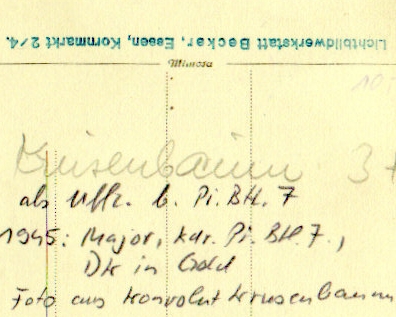 Lichtbildwerkstatt Becker, Essen, Kornmarkt 2/4.
Mimosa
10
Krusenbaum 3
als Uffz. b. Pi.Btl. 7
1945: Major, Kdr. Pi.Btl. 7.,
DK in Gold
Foto aus Konvolut Krusenbaum